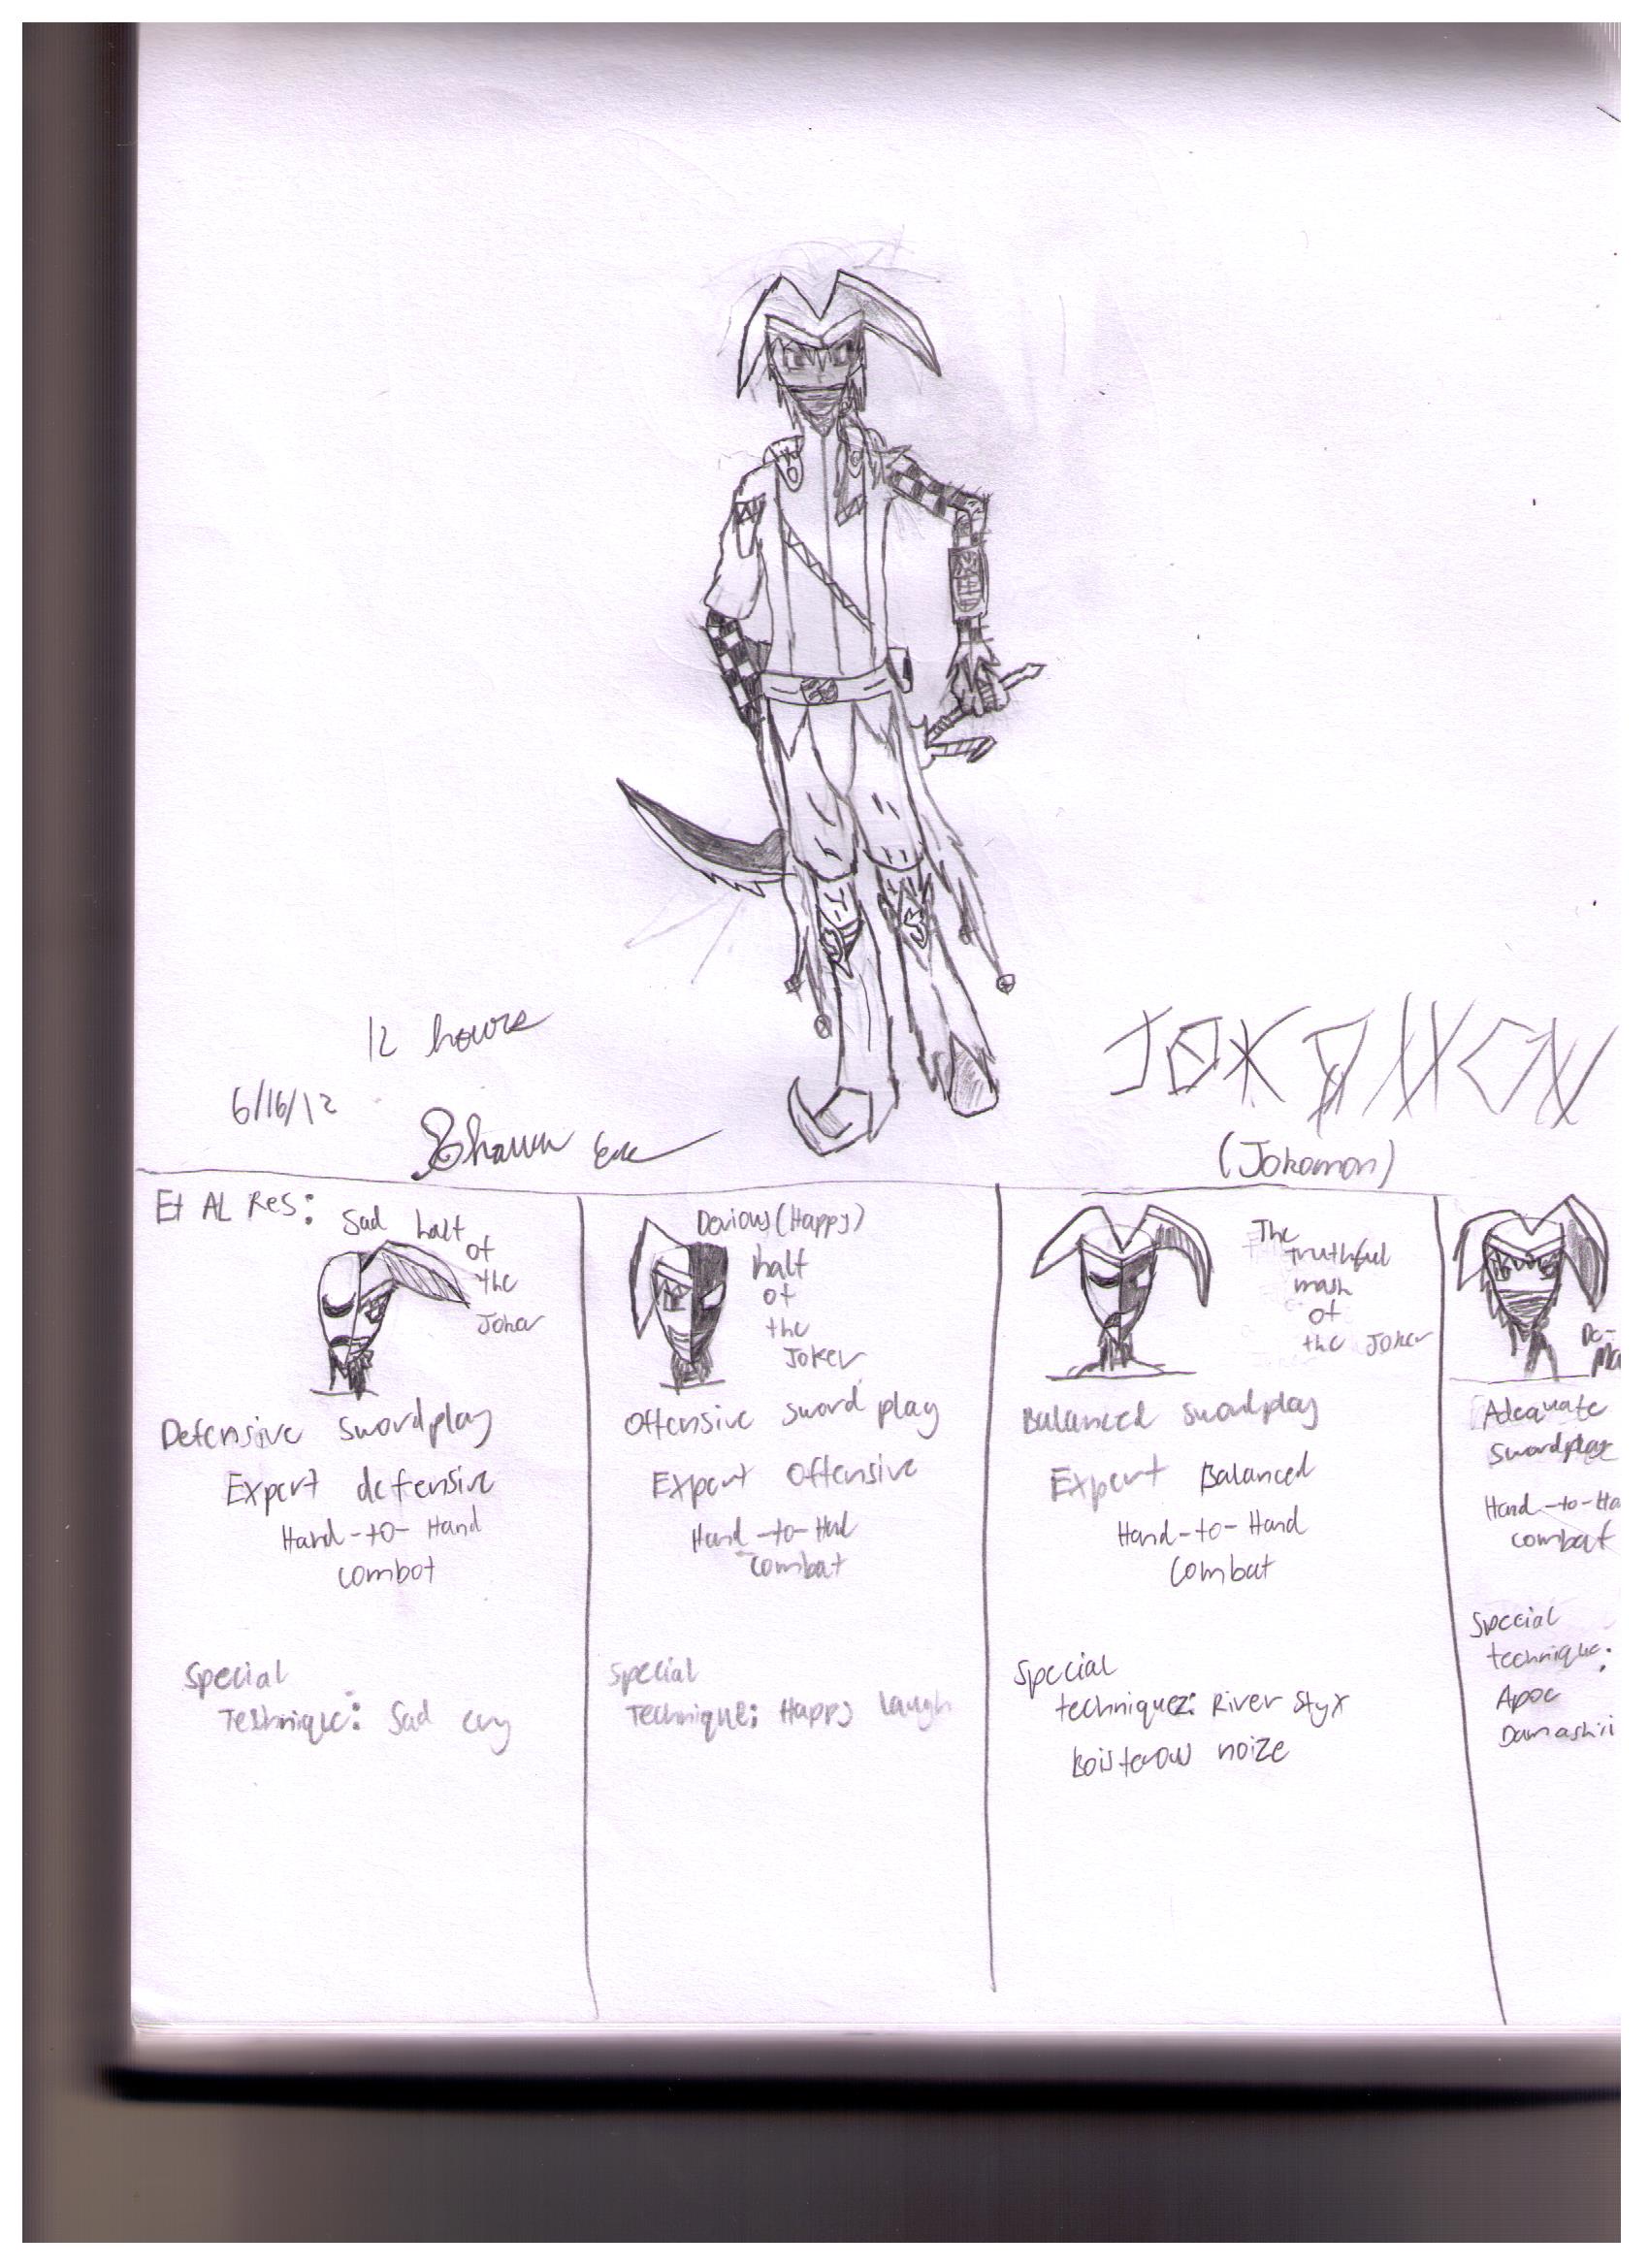 12 hours
6/16/12
Shawn
JOKAMON
(Jokamon)
Et AL Res:
Sad half
of
the
Joker
Defensive swordplay
Expert defensive
Hand-to-Hand
combat
Special
Technique: Sad cry
Devious (Happy)
half
of
the
Joker
Offensive sword play
Expert Offensive
Hand-to-Hand
combat
Special
Technique: Happy laugh
The
truthful
mask
of
the Joker
Balanced swordplay
Expert Balanced
Hand-to-Hand
Combat
Special
techniquez: River Styx
Boisterous noize
De-
Ma
Adequate
Swordplay
Hand-to-Ha
combat
Special
technique:
Apoc
Damashii